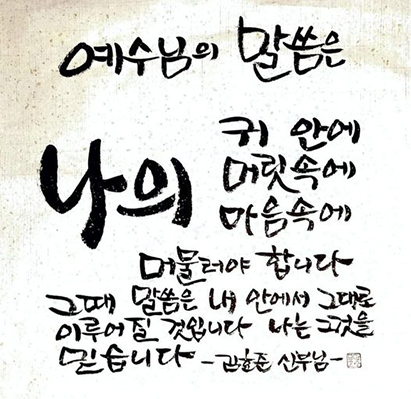 예수님의 말씀은
나의
귀 안에
머릿속에
마음속에
머물러야 합니다
그때 말씀은 내 안에서 그대로
이루어질 것입니다 나는 그것을
믿습니다 -김효준 신부님-